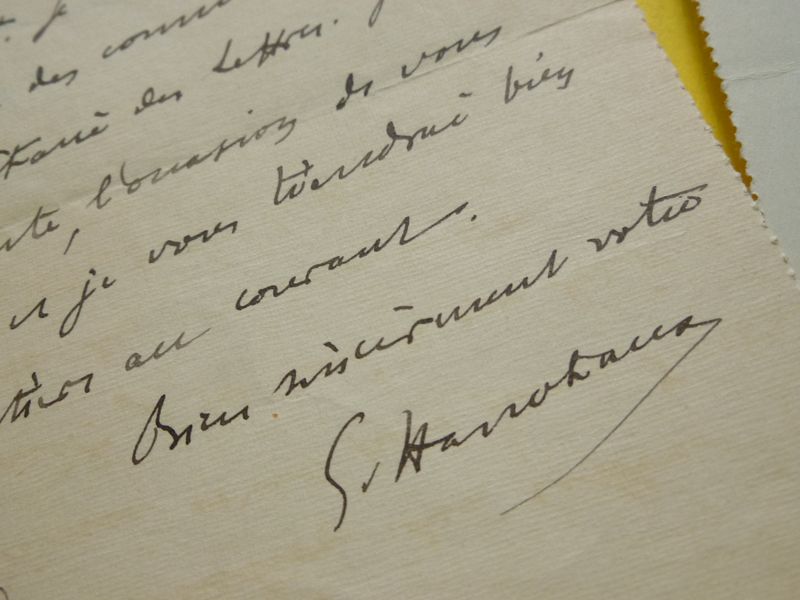 je
des
des Lettres.
l'occasion de vous
et je vous tiendrai bien
au courant.
Bien sincèrement votre
G. Hanotaux